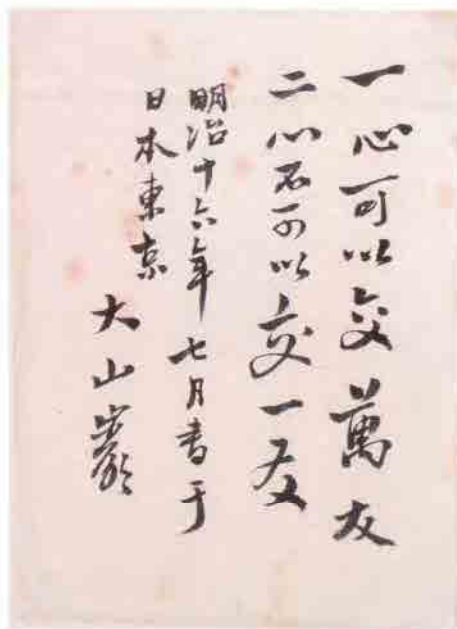 一心可以交萬友
二心不可以交一友
明治十六年七月書于
日本東京
大山巌